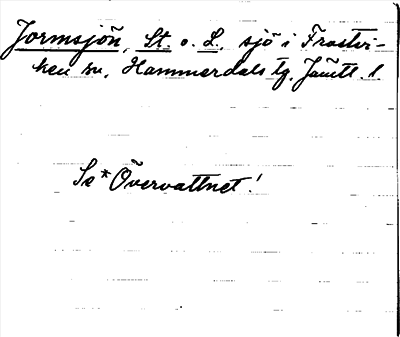 Jormsjön, St. o. L. sjö i Frostvi-
ken sn, Hammerdals tg, Jämtl. l.
Se *Övervattnet!